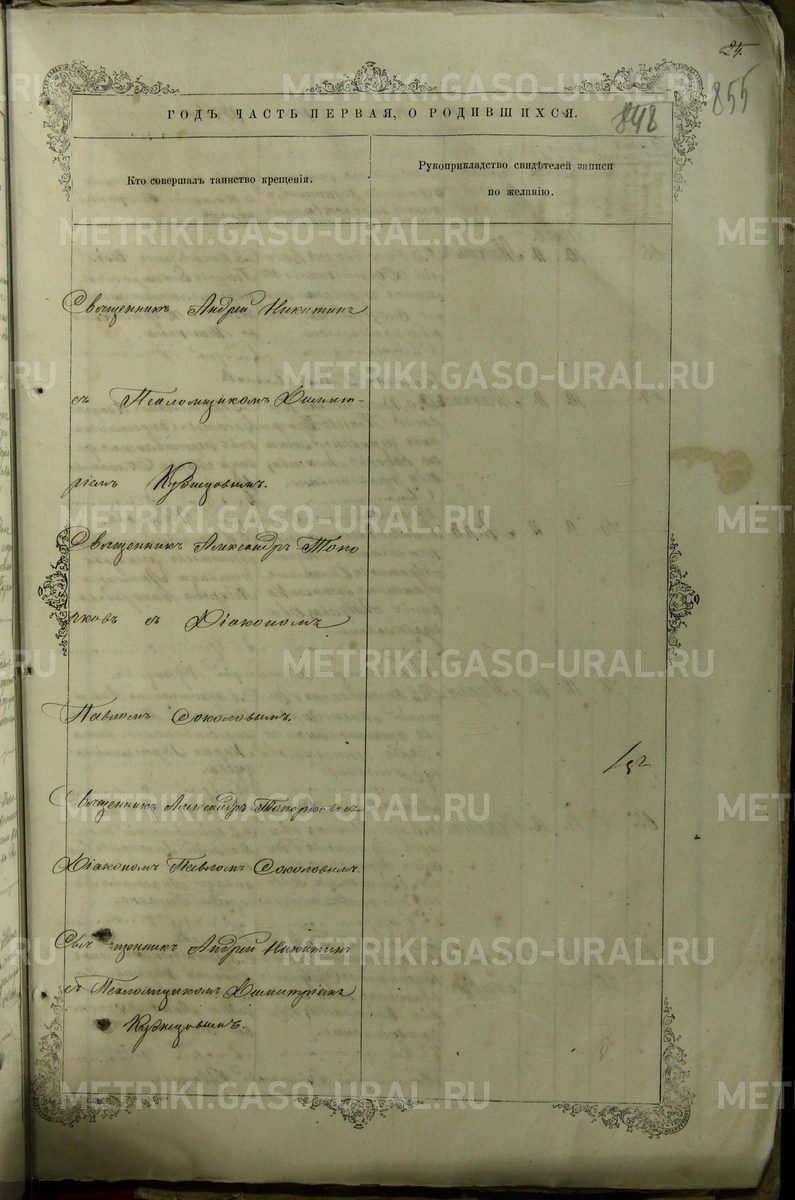 25.
855
848
ГОДЪ ЧАСТЬ ПЕРВАЯ, О РОДИВШИХСЯ.
Кто совершалъ таинство крещенія.
Рукоприкладство свидѣтелей записи
по желанію.
Священникъ Андрей Никитинъ
съ Псаломщикомъ Димит-
ріемъ Кузнецовымъ.
Священникъ Александръ Топо
рковъ съ Діакономъ
Павломъ Соколовымъ.
Священникъ Александръ Топорковъ съ
Діакономъ Павломъ Соколовымъ.
Священникъ Андрей Никитинъ
съ Псаломщикомъ Димитріемъ
Кузнецовымъ.
METRIKI.GASO-URAL.RU